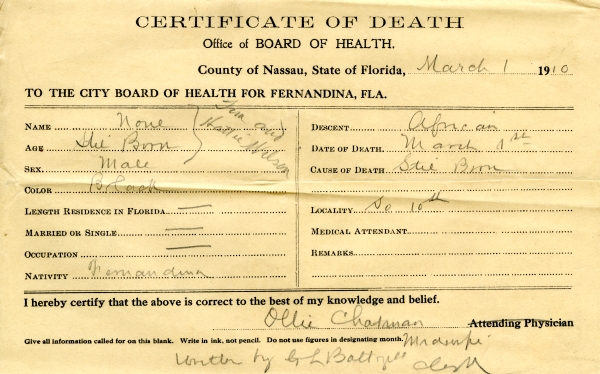 CERTIFICATE OF DEATH
Office of BOARD OF HEALTH.
County of Nassau, State of Florida, March 1 1910
TO THE CITY BOARD OF HEALTH FOR FERNANDINA, FLA.
NAME None
AGE Stie Born
SEX Male
COLOR Black
LENGTH RESIDENCE IN FLORIDA
MARRIED OR SINGLE
OCCUPATION
NATIVITY Fernandina
and
Hattie Wilson
DESCENT African
DATE OF DEATH March 1st
CAUSE OF DEATH Stie Born
LOCALITY So 10th
MEDICAL ATTENDANT
REMARKS
I hereby certify that the above is correct to the best of my knowledge and belief.
Ollie Chapman Attending Physician
Give all information called for on this blank. Write in ink, not pencil. Do not use figures in designating month. Midwife
Written by G L Baltzell